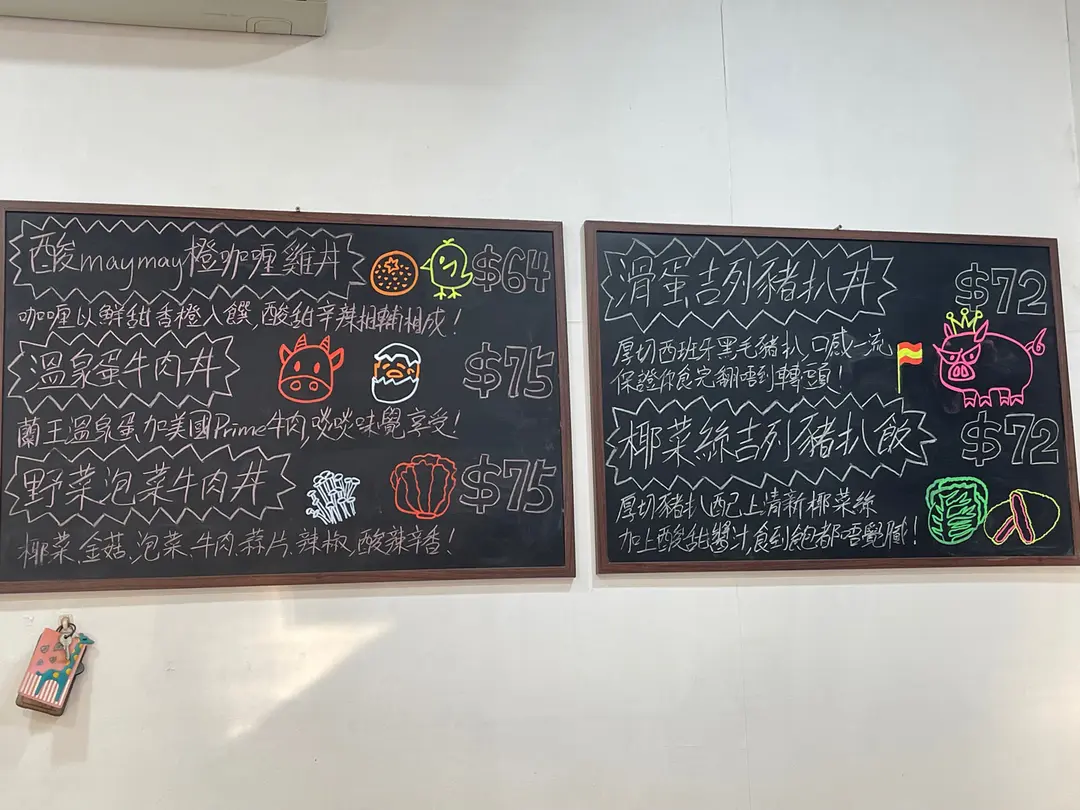 酸maymay橙咖喱雞丼 $64
咖喱以鮮甜香橙入饌,酸甜辛辣相輔相成!
溫泉蛋牛肉丼 $75
蘭王溫泉蛋加美國Prime牛肉,啖啖味覺享受!
野菜泡菜牛肉丼 $75
椰菜,金菇,泡菜,牛肉,蒜片,辣椒,酸辣辛香!
滑蛋吉列豬扒丼 $72
厚切西班牙黑毛豬扒,口感一流
保證你食完翻唔到轉頭!
椰菜絲吉列豬扒飯 $72
厚切豬扒配上清新椰菜絲
加上酸甜醬汁,食到飽都唔覺膩!